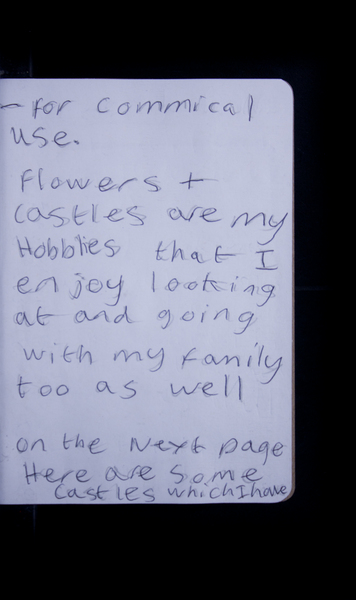 - For Commrical
use.
Flowers +
Castles are my
Hobblies that I
enjoy looking
at and going
with my family
too as well
on the Next page
Here are some
Castles which I have